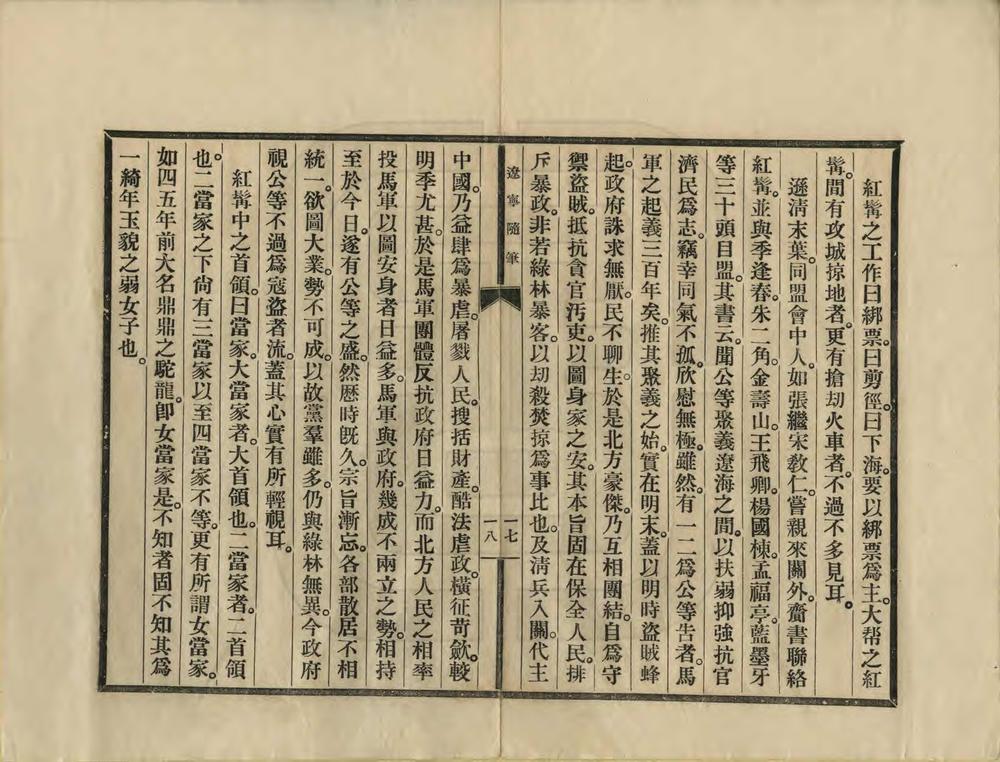 紅鬍之工作曰綁票。曰剪徑。曰下海。要以綁票爲主。大帮之紅
鬍。間有攻城掠地者。更有搶刧火車者。不過不多見耳。
遜淸末葉。同盟會中人。如張繼宋敎仁。嘗親來關外。齎書聯絡
紅鬍。並與季逢春。朱二角。金壽山。王飛卿。楊國棟。孟福亭。藍墨牙
等三十頭目盟。其書云。聞公等聚義遼海之間。以扶弱抑強抗官
濟民爲志。竊幸同氣不孤。欣慰無極。雖然。有一二爲公等吿者。馬
軍之起義三百年矣。推其聚義之始。實在明末。蓋以明時盜賊蜂
起。政府誅求無厭。民不聊生。於是北方豪傑。乃互相團結。自爲守
禦盜賊。抵抗貪官汚吏。以圖身家之安。其本旨固在保全人民。排
斥暴政。非若綠林暴客。以刧殺焚掠爲事比也。及淸兵入關。代主
遼寧隨筆
一七
一八
中國。乃益肆爲暴虐。屠戮人民。搜括財產。酷法虐政。橫征苛歛。較
明季尤甚。於是馬軍團體反抗政府日益力。而北方人民之相率
投馬軍以圖安身者日益多。馬軍與政府。幾成不兩立之勢。相持
至於今日。遂有公等之盛。然歷時旣久。宗旨漸忘。各部散居不相
統一。欲圖大業。勢不可成。以故黨羣雖多。仍與綠林無異。今政府
視公等不過爲寇盜者流。蓋其心實有所輕視耳。
紅鬍中之首領。曰當家。大當家者。大首領也。二當家者。二首領
也。二當家之下。尙有三當家以至四當家不等。更有所謂女當家。
如四五年前大名鼎鼎之駝龍。卽女當家是。不知者固不知其爲
一綺年玉貌之弱女子也。